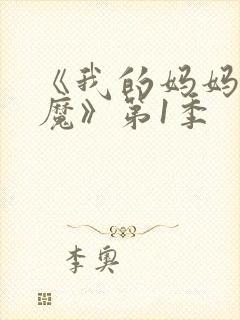 《我的妈妈
魔》第1季
李奥